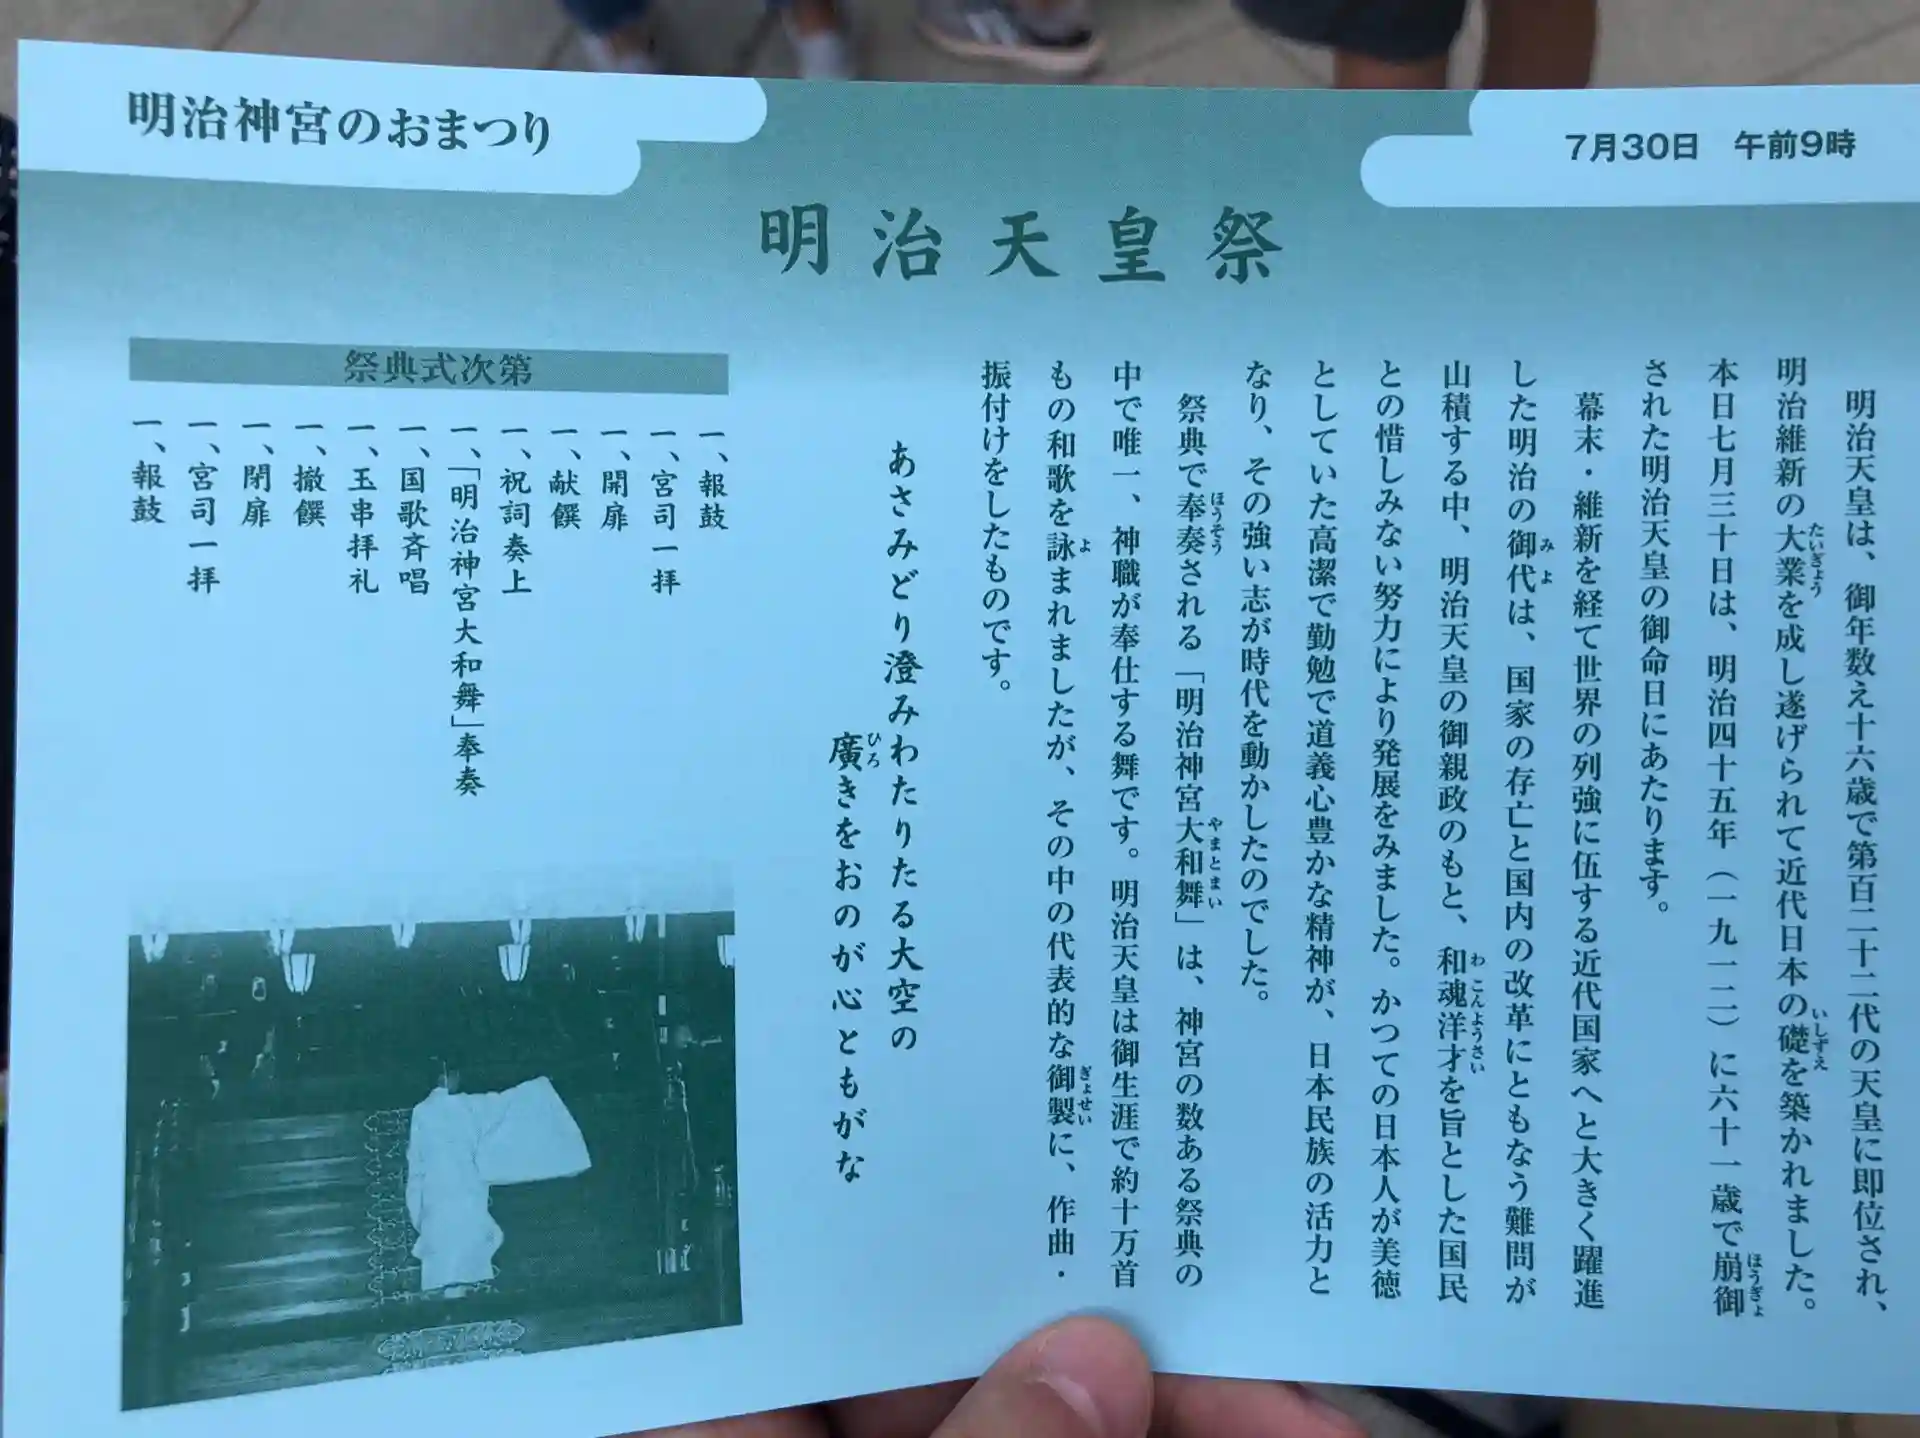 明治神宮のおまつり
7月30日 午前9時
明治天皇祭
明治天皇は、御年数え十六歳で第百二十二代の天皇に即位され、
明治維新の大業を成し遂げられて近代日本の礎を築かれました。
たいぎょう
いしずえ
本日七月三十日は、明治四十五年（一九一二）に六十一歳で崩御
ほうぎょ
された明治天皇の御命日にあたります。
幕末・維新を経て世界の列強に伍する近代国家へと大きく躍進
した明治の御代は、国家の存亡と国内の改革にともなう難問が
みよ
山積する中、明治天皇の御親政のもと、和魂洋才を旨とした国民
わこんようさい
との惜しみない努力により発展をみました。かつての日本人が美徳
としていた高潔で勤勉で道義心豊かな精神が、日本民族の活力と
なり、その強い志が時代を動かしたのでした。
祭典で奉奏される「明治神宮大和舞」は、神宮の数ある祭典の
ほうそう
やまとまい
中で唯一、神職が奉仕する舞です。明治天皇は御生涯で約十万首
もの和歌を詠まれましたが、その中の代表的な御製に、作曲・
よ
ぎょせい
振付けをしたものです。
あさみどり澄みわたりたる大空の
廣きをおのが心ともがな
ひろ
祭典式次第
一、報鼓
一、宮司一拝
一、開扉
一、献饌
一、祝詞奏上
一、「明治神宮大和舞」奉奏
一、国歌斉唱
一、玉串拝礼
一、撤饌
一、閉扉
一、宮司一拝
一、報鼓